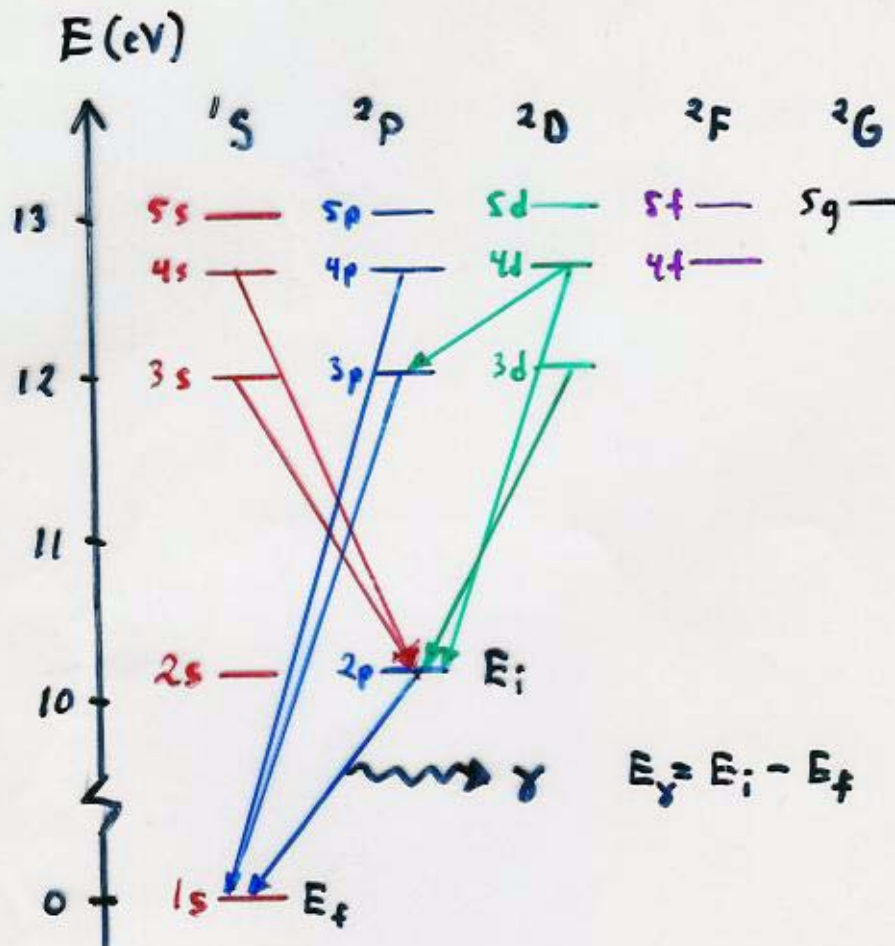 E (eV)
¹S ²P ²D ²F ²G
13 5s 5p 5d 5f 5g
4s 4p 4d 4f
12 3s 3p 3d
11
2s 2p Eᵢ
10
γ Eᵧ = Eᵢ - E_f
0 1s E_f